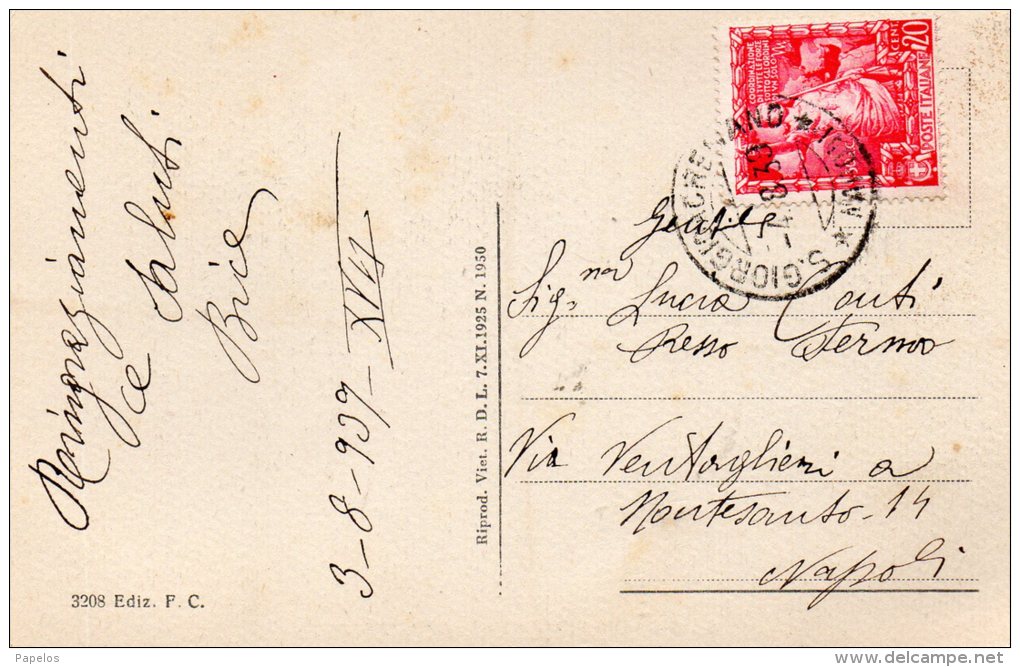 Ringraziamenti
e saluti
Bice
3-8-939-XVII
3208 Ediz. F. C.
Riprod. Viet. R. D. L. 7.XI.1925 N. 1950
COORDINAZIONE
DI TUTTE LE FORZE
SOTTO GLI ORDINI
DI UN SOLO
CENT 20
POSTE ITALIANE
S. GIORGIO A CREMANO * (NAPOLI) *
4 8 39
Gentile
Sig.na Lucia Conti
Presso Fermo
Via Ventaglieri a
Montesanto - 14
Napoli
Papelos
www.delcampe.net